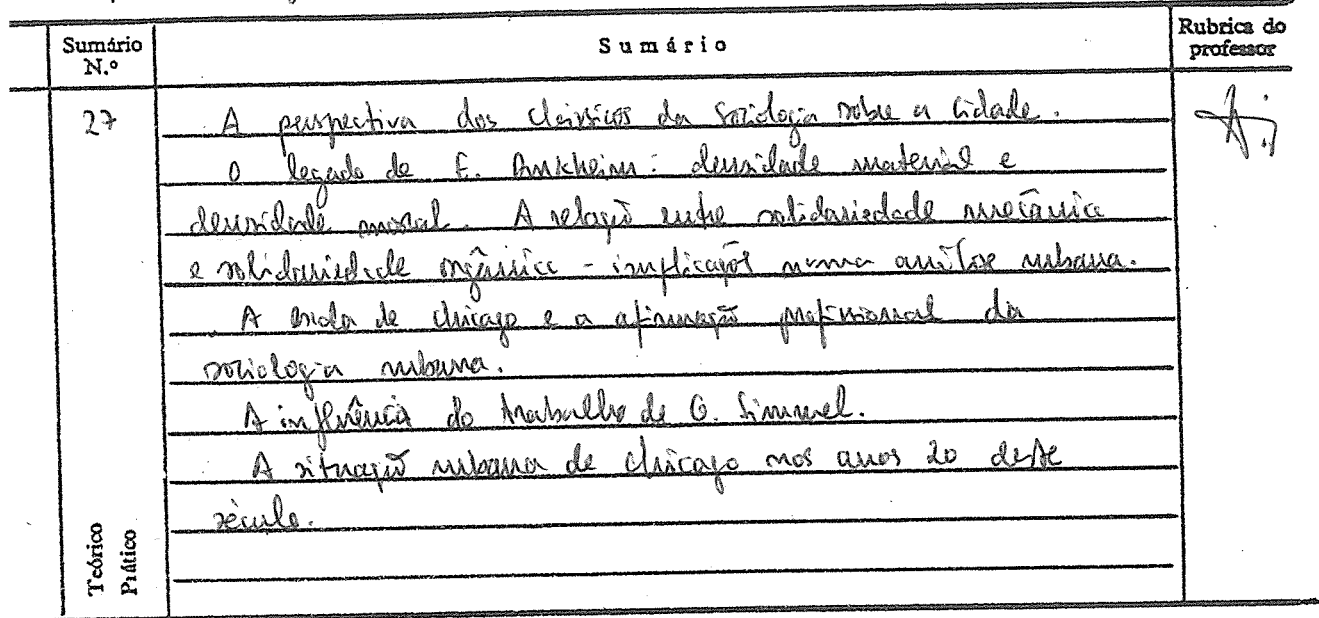 Sumário N.º
Sumário
Rubrica do professor
27
A perspectiva dos clássicos da sociologia sobre a cidade.
O legado de E. Durkheim: densidade material e
densidade moral. A relação entre solidariedade mecânica
e solidariedade orgânica - implicações numa análise urbana.
A escola de Chicago e a afirmação profissional da
sociologia urbana.
A influência do trabalho de G. Simmel.
A situação urbana de Chicago nos anos 20 deste
século.
Teórico
Prático